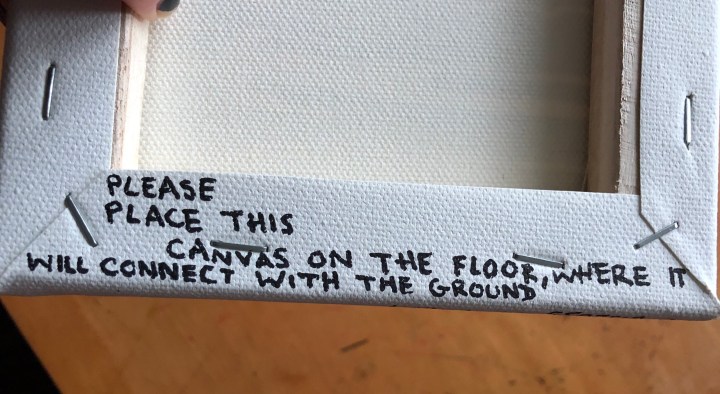 PLEASE
PLACE THIS
CANVAS ON THE FLOOR, WHERE IT
WILL CONNECT WITH THE GROUND